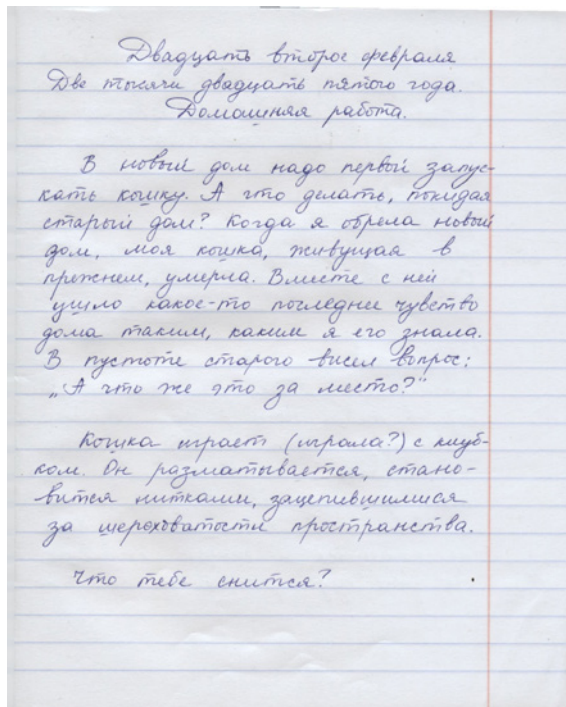 Двадцать второе февраля
Две тысячи двадцать пятого года.
Домашняя работа.
В новый дом надо первой запус-
кать кошку. А что делать, покидая
старый дом? Когда я обрела новый
дом, моя кошка, живущая в
прежнем, умерла. Вместе с ней
ушло какое-то последнее чувство
дома таким, каким я его знала.
В пустоте старого висел вопрос:
„А что же это за место?"
Кошка играет (играла?) с клуб-
ком. Он разматывается, стано-
вится нитками, зацепившимися
за шероховатости пространства.
Что тебе снится?